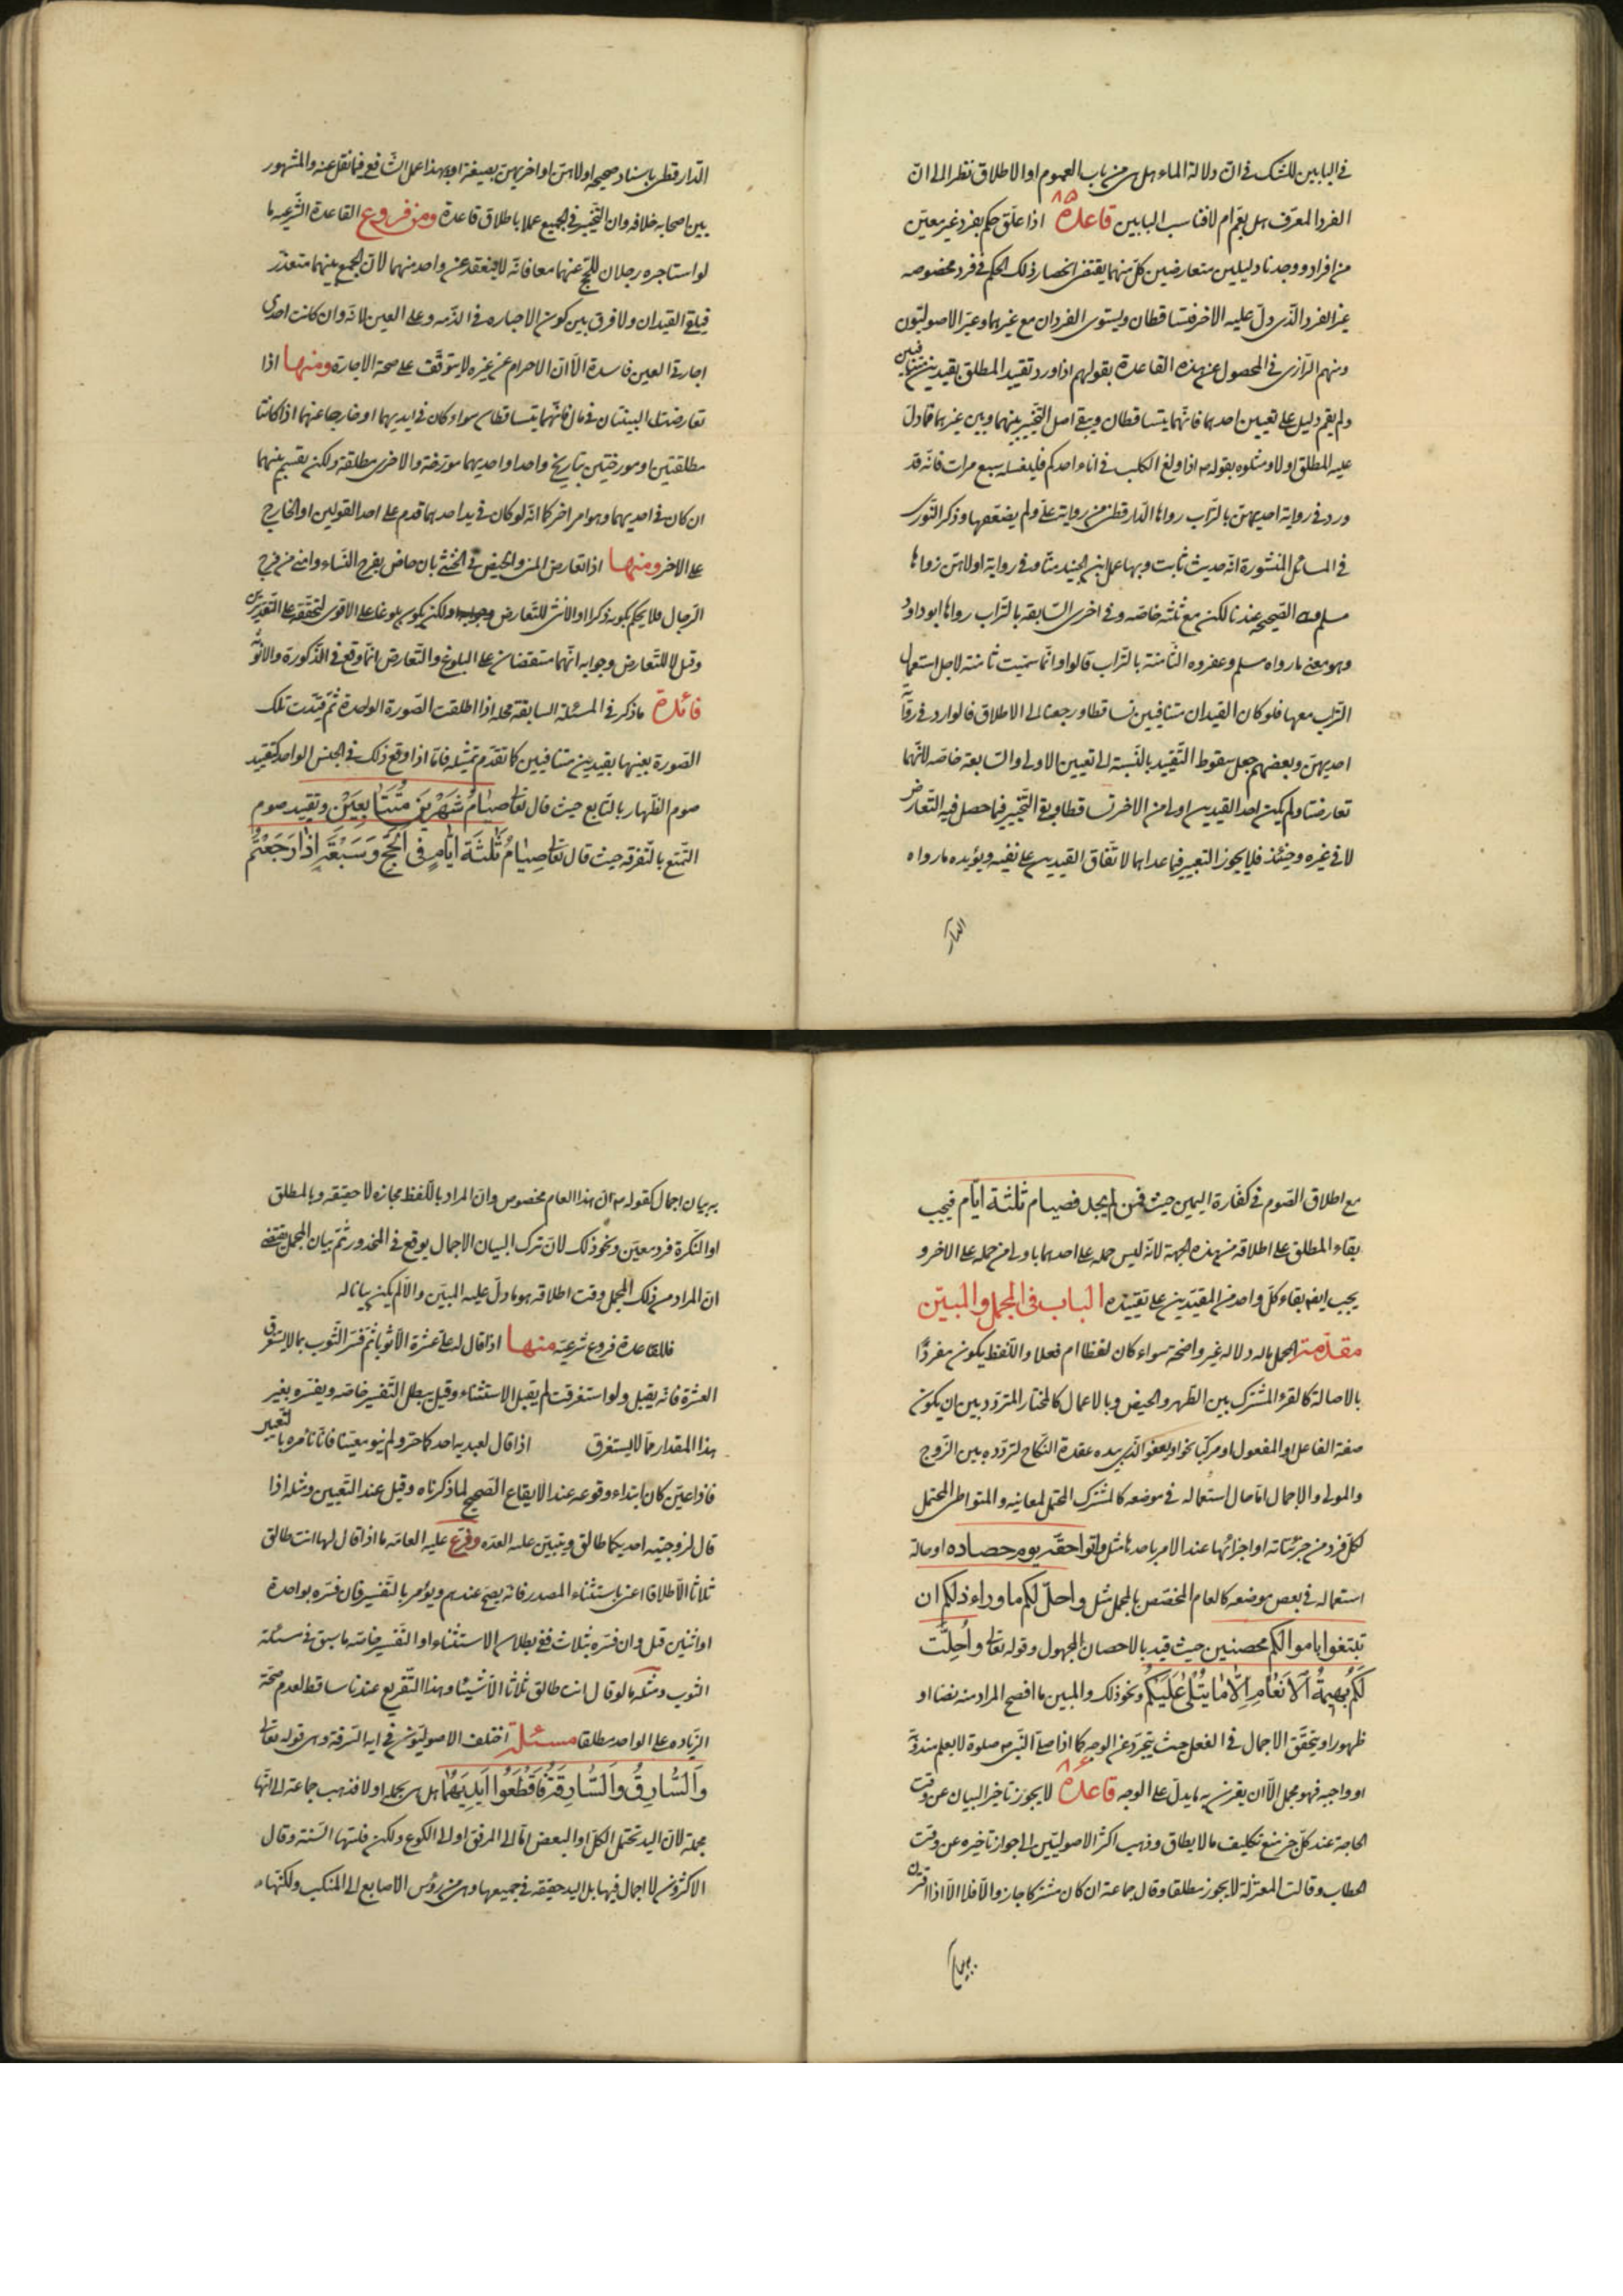 في البابين للشك في ان دلالة الماء هل هي من باب العموم او الاطلاق نظرا الى ان
الفرد المعرف هل يعم ام لا فناسب البابين قاعدة ٨٥ اذا علق حكم بفرد غير معين
من افراد ووجدنا دليلين متعارضين كل منهما يقتضي انحصار ذلك الحكم في فرد مخصوصه
غير الفرد الذي دل عليه الاخر فتساقطان ويستوي الفردان مع غيرهما وعبر الاصوليون
ومنهم الرازي في المحصول عن هذه القاعدة بقولهم اذا ورد تقييد المطلق بقيدين متنافيين
ولم يقم دليل على تعيين احدهما فانهما يتساقطان ويبقى اصل التخيير بينهما وبين غيرهما فما دل
عليه المطلق اولا ومثلوه بقوله ص اذا ولغ الكلب في اناء احدكم فليغسله سبع مرات فانه قد
ورد في رواية احديهن بالتراب رواها الدارقطني من رواية علي ولم يضعفها وذكر النووي
في المسائل المنثورة انه حديث ثابت وبها عمل ابن الجنيد منا وفي رواية اولاهن رواها
مسلم وهي الصحيحه عندنا لكن مع ثلثه خاصه وفي اخرى السابعه بالتراب رواها ابو داود
وهو معنى ما رواه مسلم وعفروه الثامنة بالتراب قالوا وانما سميت ثامنة لاجل استعمال
التراب معها فلو كان القيدان متنافيين تساقطا ورجعنا الى الاطلاق فالوارد في رواية
احديهن وبعضهم جعل سقوط التقييد بالنسبة الى تعيين الاولى والسابعه خاصه لانهما
تعارضتا ولم يكن احد القيدين اولى من الاخر تساقطا وبقي التخيير فيما حصل فيه التعارض
لا في غيره وحينئذ فلا يجوز التعبير فيما عداهما لاتفاق القيدين على نفيه ويؤيده ما رواه
الدار
الدارقطني باسناد صحيح اولاهن او اخريهن بصيغة او وبهذا عمل الشافعي فيما نقل عنه والمشهور
بين اصحابه خلافه وان التخيير في الجميع عملا باطلاق قاعدة ومن فروع القاعدة الشرعيه ما
لو استاجره رجلان للحج عنهما معا فانه لا ينعقد عن واحد منهما لان الجمع بينهما متعذر
فيلغي القيدان ولا فرق بين كون الاجاره في الذمه وعلى العين لانه وان كانت احدى
اجارتي العين فاسدة الا ان الاحرام عن غيره لا يتوقف على صحة الاجارة ومنها اذا
تعارضت البينتان في مال فانهما يتساقطان سواء كان في ايديهما او خارجا عنهما اذا كانتا
مطلقتين او مورختين بتاريخ واحد او احديهما مورخة والاخرى مطلقة ولكن يقسم بينهما
ان كان في ايديهما وهو امر اخر كما انه لو كان في يد احدهما قدم على احد القولين او الخارج
على الاخر ومنها اذا تعارض المني والحيض في الخنثى بان حاض بفرج النساء وامنى من فرج
الرجال فلا يحكم بكونه ذكرا او الانثى للتعارض ولكن يكون بلوغا على الاقوى لتحققه على التقديرين
وقيل لا للتعارض وجوابه انهما متفقتان على البلوغ والتعارض انما وقع في الذكورة والانوثة
فائدة ما ذكر في المسئلة السابقة محله اذا اطلقت الصورة الواحدة ثم قيدت تلك
الصورة بعينها بقيدين متنافيين كما تقدم تمثيله فاما اذا وقع ذلك في الجنس الواحد كتقييد
صوم الظهار بالتتابع حيث قال تعالى صيام شهرين متتابعين وتقييد صوم
التمتع بالتفرقه حيث قال تعالى صيام ثلثة ايام في الحج وسبعة اذا رجعتم
مع اطلاق الصوم في كفارة اليمين حيث فمن لم يجد فصيام ثلثة ايام فيجب
بقاء المطلق على اطلاقه من هذه الجهة لانه ليس حمله على احدهما باولى من حمله على الاخر و
يجب ايضا بقاء كل واحد من المقيدين على تقييده الباب في المجمل والمبين
مقدمة المجمل ما له دلاله غير واضحة سواء كان لفظا ام فعلا واللفظ يكون مفردا
بالاصالة كالقرء المشترك بين الطهر والحيض وبالاعمال كالمختار المتردد بين ان يكون
صفة الفاعل او المفعول او مركبا نحو او يعفو الذي بيده عقدة النكاح لتردده بين الزوج
والمولى والاجمال اما حال استعماله في موضعه كالمشترك المحتمل لمعانيه والمتواطي المحتمل
لكل فرد من جزئياته او اجزائها عند الامر باحدها مثل واتوا حقه يوم حصاده او حالة
استعماله في بعض موضعه كالعام المخصص بالمجمل مثل واحل لكم ما وراء ذلكم ان
تبتغوا باموالكم محصنين حيث قيد بالاحصان المجهول وقوله تعالى واحلت
لكم بهيمة الانعام الا ما يتلى عليكم ونحو ذلك والمبين ما افصح المراد منه نصا او
ظهورا ويتحقق الاجمال في الفعل حيث يتجرد عن الوجه كما اذا صلى النبي ص صلوة لا يعلم مندوبة
او واجبه فهو مجمل الا ان يقرن به ما يدل على الوجه قاعدة ٨٦ لا يجوز تاخير البيان عن وقت
الحاجة عند كل من منع تكليف ما لا يطاق وذهب اكثر الاصوليين الى جواز تاخيره عن وقت
الخطاب وقالت المعتزلة لا يجوز مطلقا وقال جماعة ان كان مشتركا جاز والا فلا الا اذا اقترن
به بيان
به بيان اجمال كقوله ص ان هذا العام مخصوص وان المراد باللفظ مجازه لا حقيقه وبالمطلق
او النكرة فرد معين ونحو ذلك لان ترك البيان الاجمال يوقع في المحذور ثم بيان المجمل يقتضي
ان المراد من ذلك المجمل وقت اطلاقه هو ما دل عليه المبين والا لم يكن بيانا له
فللقاعدة فروع شرعيه منها اذا قال له علي عشرة الا ثوبا ثم فسر الثوب بما لا يستغرق
العشرة فانه يقبل ولو استغرقت لم يقبل الاستثناء وقيل يبطل التفسير خاصه ويفسره بغير
هذا المقدار مما لا يستغرق اذا قال لعبديه احدكما حر ولم ينو معينا فانا نامره بالتعيين
فاذا عين كان ابتداء وقوعه عند الايقاع الصحيح لما ذكرناه وقيل عند التعيين ومثله اذا
قال لزوجتيه احديكما طالق ويتبين عليه العده وفرع عليه العامه ما اذا قال لها انت طالق
ثلاثا الا طلاقا اعني باستثناء المصدر فانه يصح عندهم ويؤمر بالتفسير فان فسره بواحدة
او اثنين قبل وان فسره بثلاث ففي بطلان الاستثناء او التفسير خاصه ما سبق في مسئلة
الثوب ومثله ما لو قال انت طالق ثلاثا الا شيئا وهذا التفريع عندنا ساقط لعدم صحة
الزياده على الواحد مطلقا مسئلة اختلف الاصوليون في ايه السرقة وهي قوله تعالى
والسارق والسارقة فاقطعوا ايديهما هل هي مجمله او لا فذهب جماعة الى انها
مجملة لان اليد تحتمل الكل او البعض اما الى المرفق او الى الكوع ولكن فلتها السنة وقال
الاكثرون لا اجمال فيها بل اليد حقيقه في جميعها وهي من رؤس الاصابع الى المنكب ولكنها